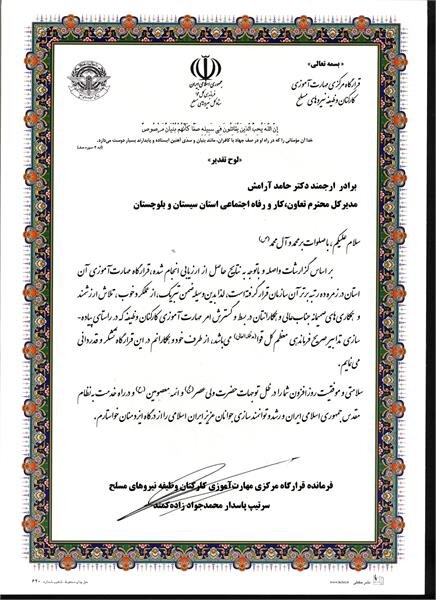 «بسمه تعالی»
قرارگاه مرکزی مهارت آموزی
کارکنان وظیفه نیروهای مسلح
جمهوری اسلامی ایران
ستاد کل نیروهای مسلح
إنَّ اللهَ یُحِبُّ الَّذینَ یُقاتِلونَ فی سَبیلِهِ صَفّاً کَأنَّهُم بُنیانٌ مَرصوصٌ
خدا آن مؤمنانی را که در راه او در صف جهاد با کافران، مانند بنیان و سدی آهنین ایستاده و پایدارند بسیار دوست می‌دارد.
(آیه ۴ سوره صف)
«لوح تقدیر»
برادر ارجمند دکتر حامد آرامش
مدیرکل محترم تعاون،کار و رفاه اجتماعی استان سیستان و بلوچستان
سلام علیکم، با صلوات بر محمد و آل محمد (ص)
بر اساس گزارشات واصله و باتوجه به نتایج حاصل از ارزیابی انجام شده، قرارگاه مهارت‌آموزی آن
استان در زمره رتبه برتر آن سازمان قرار گرفته است، لذا بدین وسیله ضمن تبریک، از عملکرد خوب، تلاش ارزشمند
و همکاری‌های صمیمانه جنابعالی و همکارانتان در بسط و گسترش امر مهارت آموزی کارکنان وظیفه که در راستای پیاده-
سازی تدابیر صریح فرماندهی معظم کل قوا (مدظله‌العالی) می‌باشد، از طرف خود و همکارانم در این قرارگاه تشکر و قدردانی
می‌نمایم.
سلامتی و موفقیت روزافزون شما را در ظل توجهات حضرت ولی عصر (عج) و ائمه معصومین (ع) و در راه خدمت به نظام
مقدس جمهوری اسلامی ایران و رشد و توانمندسازی جوانان عزیز ایران اسلامی را از درگاه ایزد منان خواستارم.
فرمانده قرارگاه مرکزی مهارت‌آموزی کارکنان وظیفه نیروهای مسلح
سرتیپ پاسدار محمدجواد زاده‌کمند